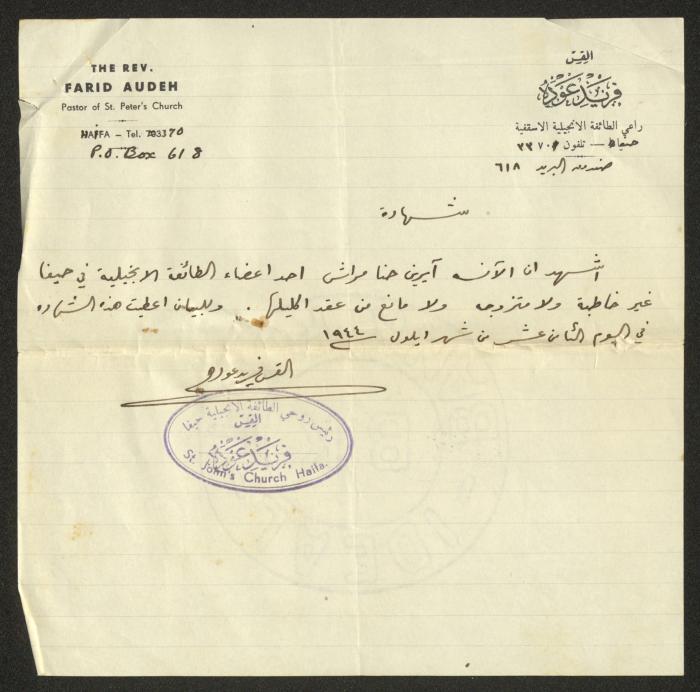 THE REV.
FARID AUDEH
Pastor of St. Peter's Church
HAIFA – Tel. 70
P.O. Box 618
القس
فريد عوده
راعي الطائفة الانجيلية الاسقفية
تلفون
صندوق البريد ٦١٨
شهادة
اشهد ان الآنسه آيرين حنا مراش احد اعضاء الطائفة الانجيلية في حيفا
غير خاطبة ولا متزوجه ولا مانع من عقد اكليلها. وللبيان اعطيت هذه الشهاده
في اليوم الثامن عشر من شهر ايلول ١٩٤٤
القس فريد عوده
رئيس روحي الطائفة الانجيلية حيفا
القس
فريد عوده
St. John's Church Haifa.